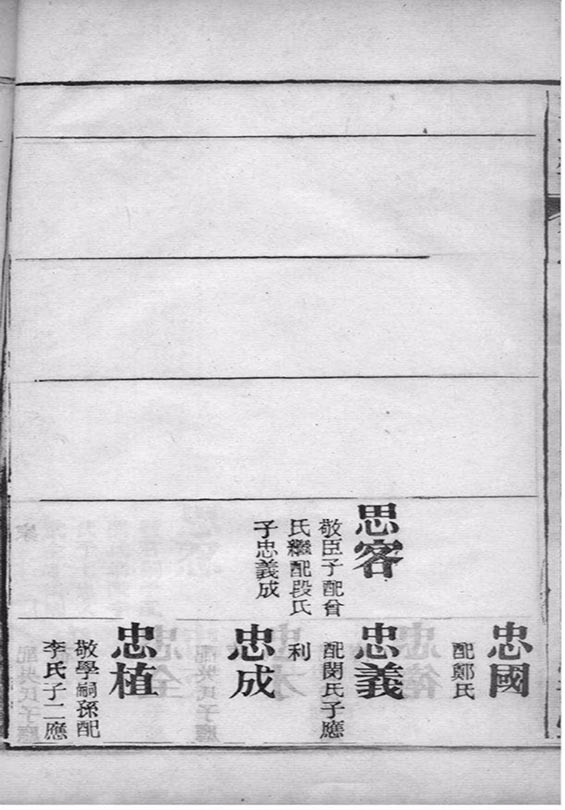 思容
敬臣子配曾
氏繼配段氏
子忠義成
忠國
配鄭氏
忠義
配閔氏子應
利
忠成
忠植
敬學嗣孫配
李氏子二應